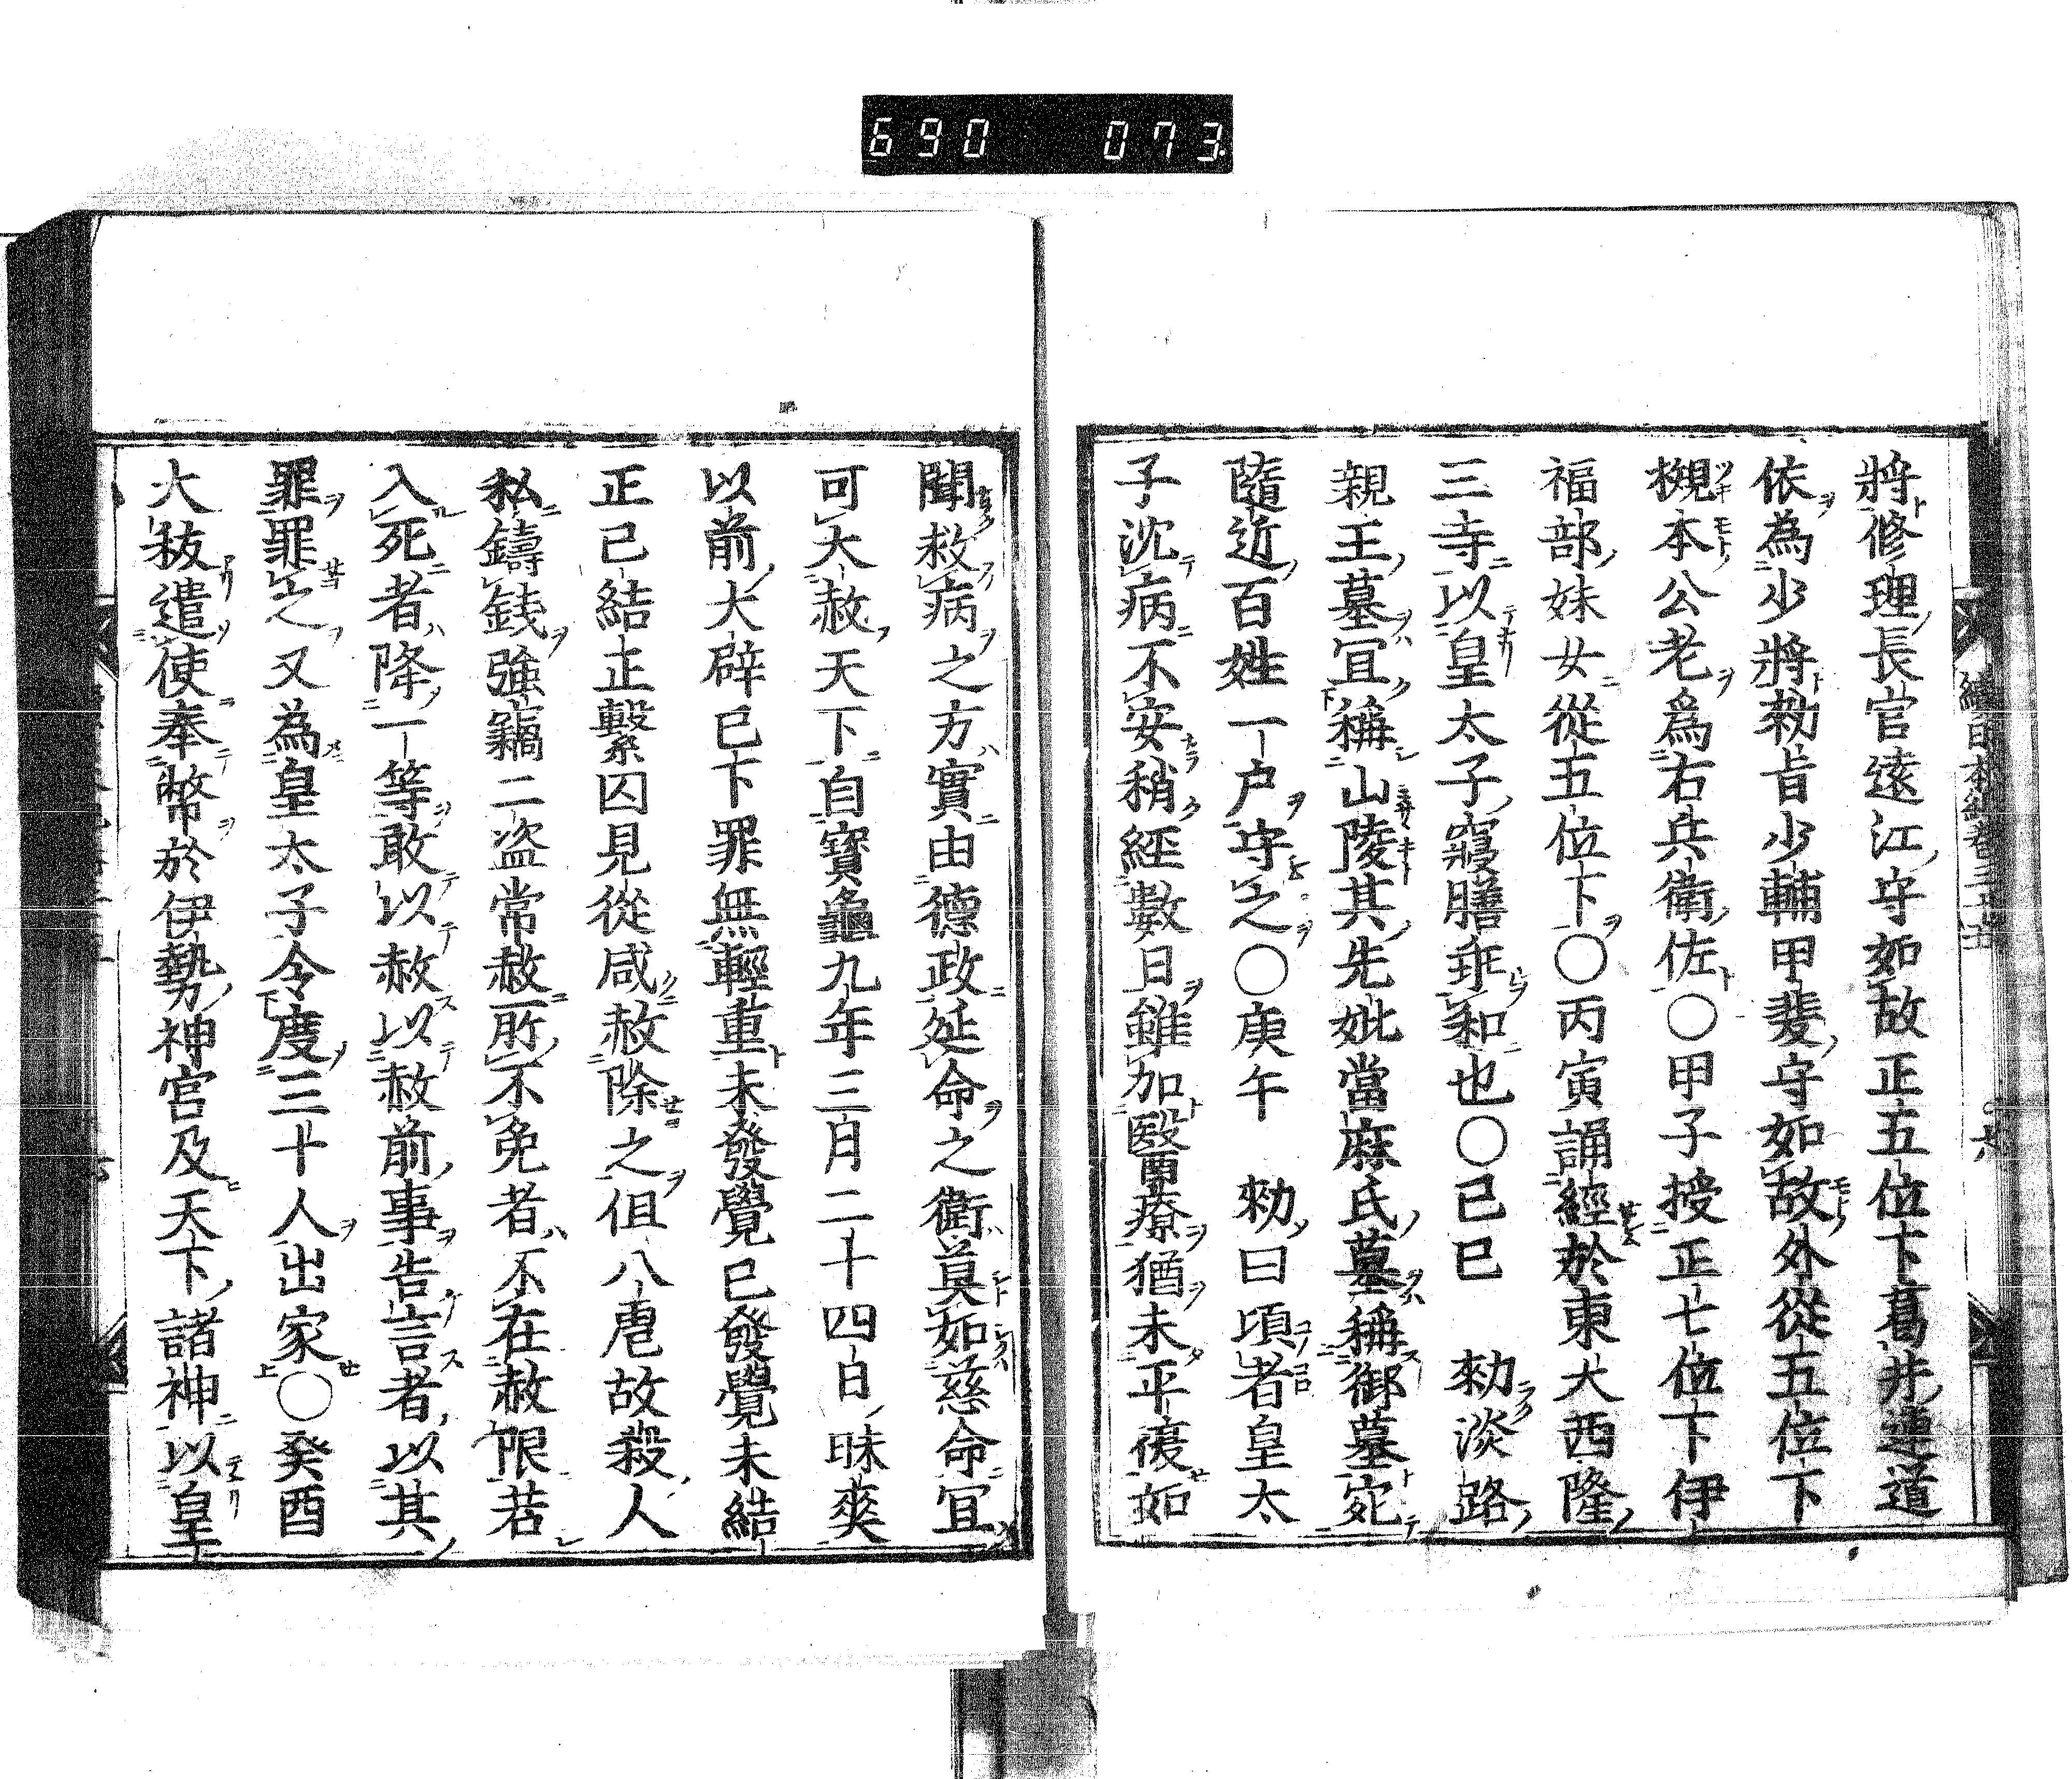 690 073
將修理長官遠江守如故正五位下葛井連道
依為少將勅旨少輔甲斐守如故外從五位下
槻本公老爲右兵衛佐〇甲子授正七位下伊
福部妹女從五位下〇丙寅誦經於東大西隆
三寺以皇太子寢膳乖和也〇己巳 勅淡路
親王墓宜稱山陵其先妣當麻氏墓稱御墓宛
隨近百姓一戸守之〇庚午 勅曰頃者皇太
子沈病不安稍經數日雖加醫療猶未平復如
聞救病之方實由德政延命之術莫如慈命宜
可大赦天下自寶龜九年三月二十四日昧爽
以前大辟已下罪無輕重未發覺已發覺未結
正已結正繫囚見從咸赦除之但八虐故殺人
私鑄錢強竊二盗常赦所不免者不在赦限若
入死者降一等敢以赦以赦前事告言者以其
罪罪之又為皇太子令度三十人出家〇癸酉
大秡遣使奉幣於伊勢神宮及天下諸神以皇